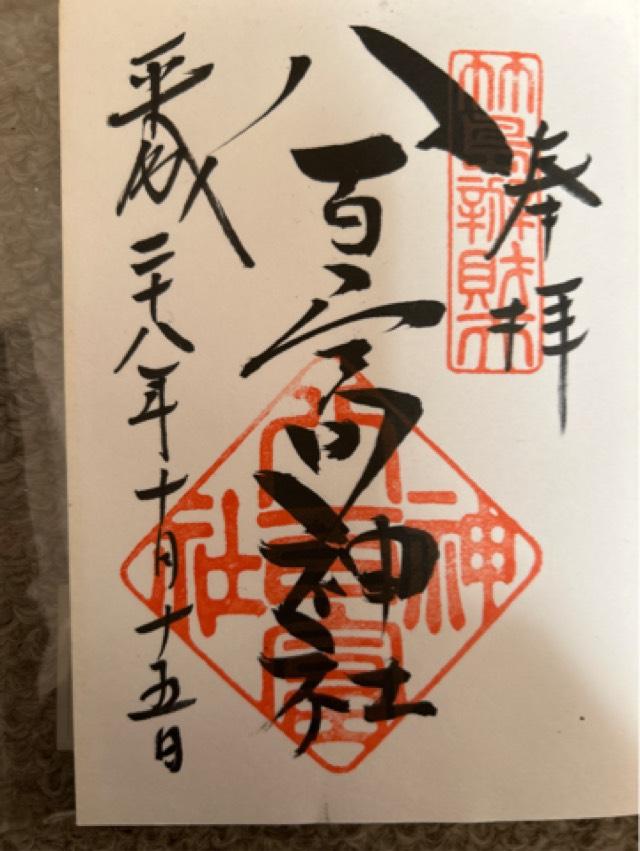 奉拝
八百富神社
平成二十八年十月十五日
竹島弁財天
八百富
神社